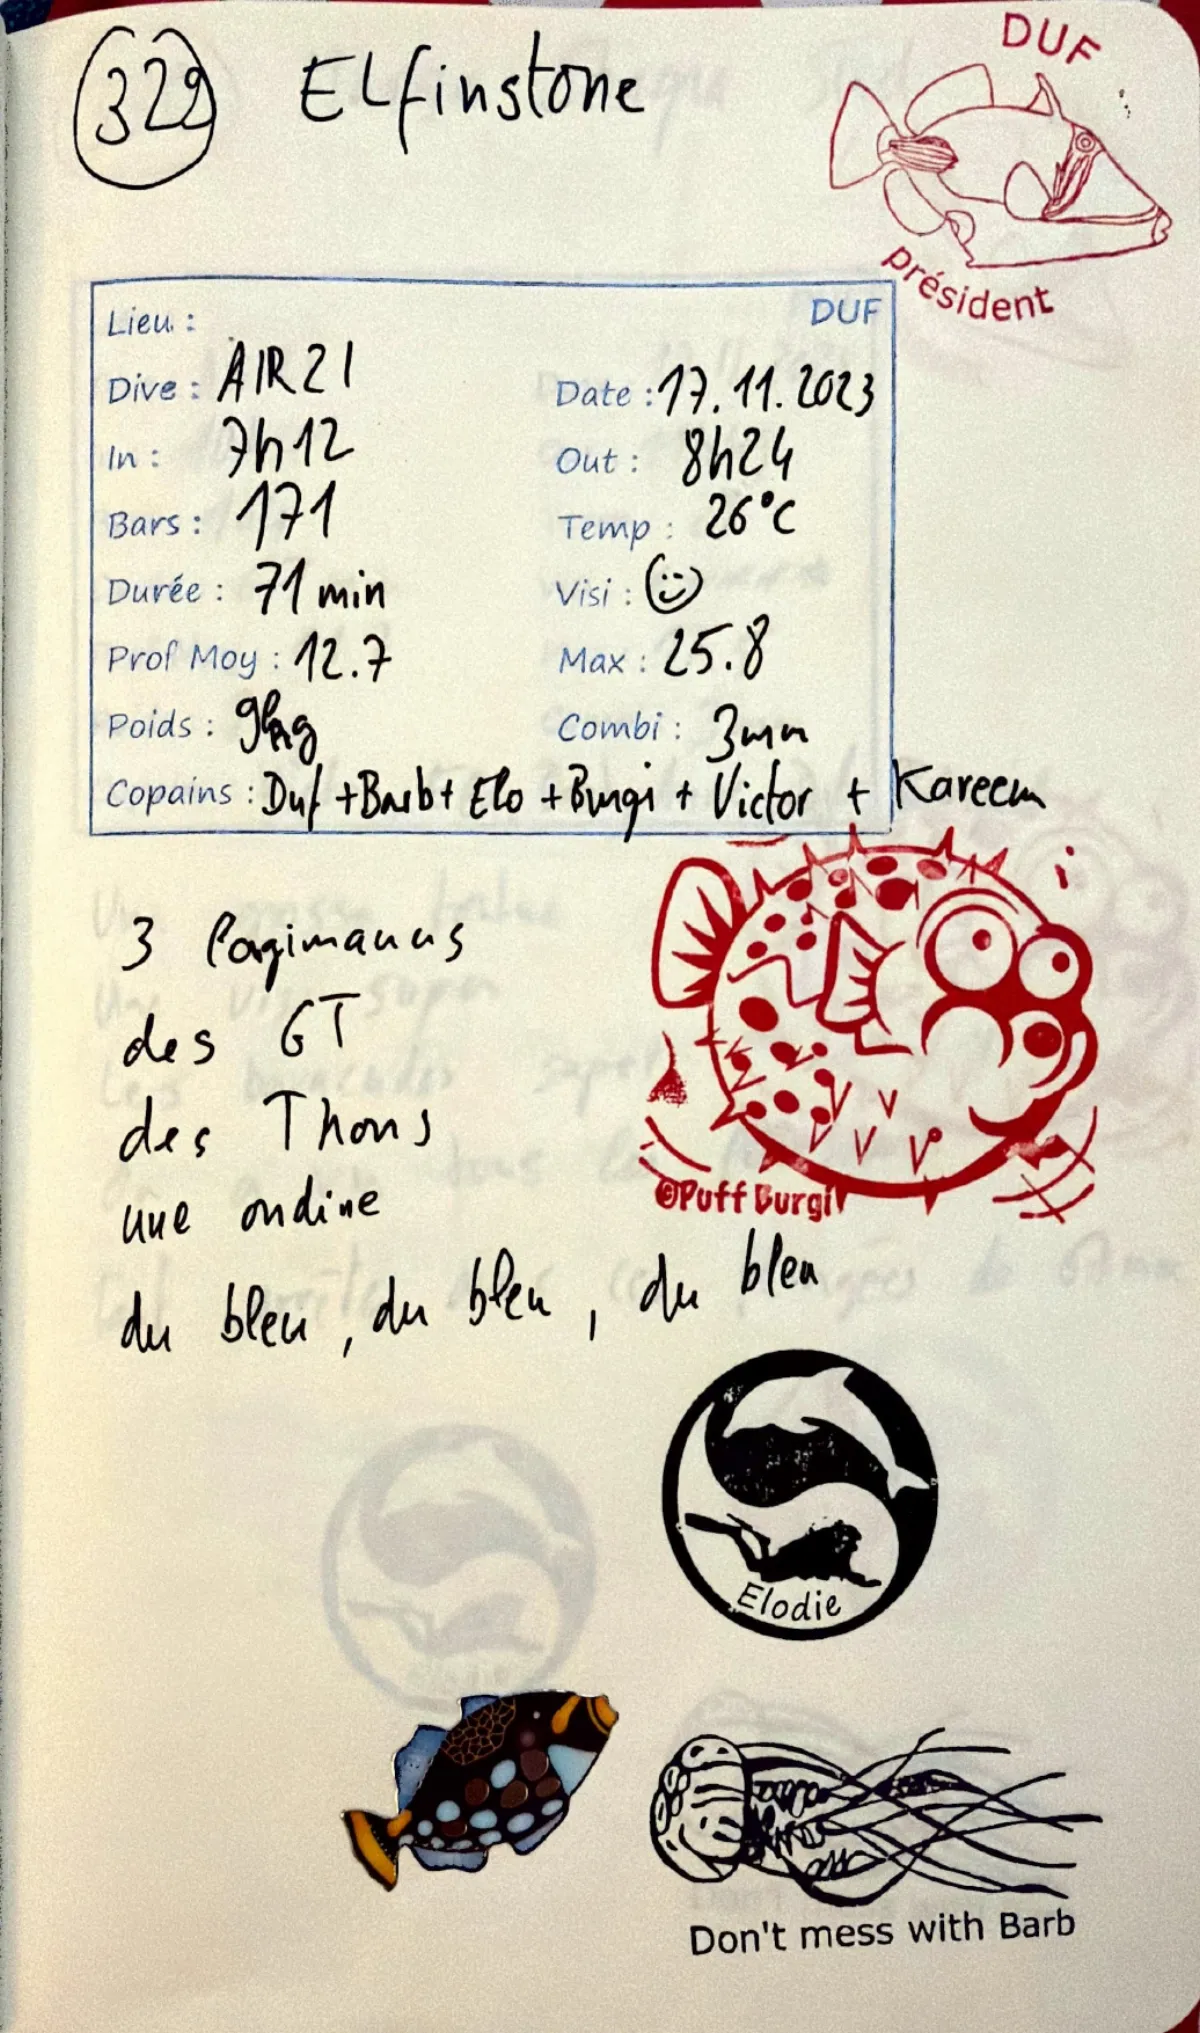 329 ELfinstone
DUF
président
Lieu : DUF
Dive : AIR 21 Date : 17.11.2023
In : 7h12 Out : 8h24
Bars : 171 Temp : 26°C
Durée : 71 min Visi :
Prof Moy : 12.7 Max : 25.8
Poids : Combi : 3mm
Copains : Duf + Barb + Elo + Burgi + Victor + Kareem
3 Longimanus
des GT
des Thons
une ondine
du bleu, du bleu, du bleu
©Puff Burgi
Elodie
Don't mess with Barb